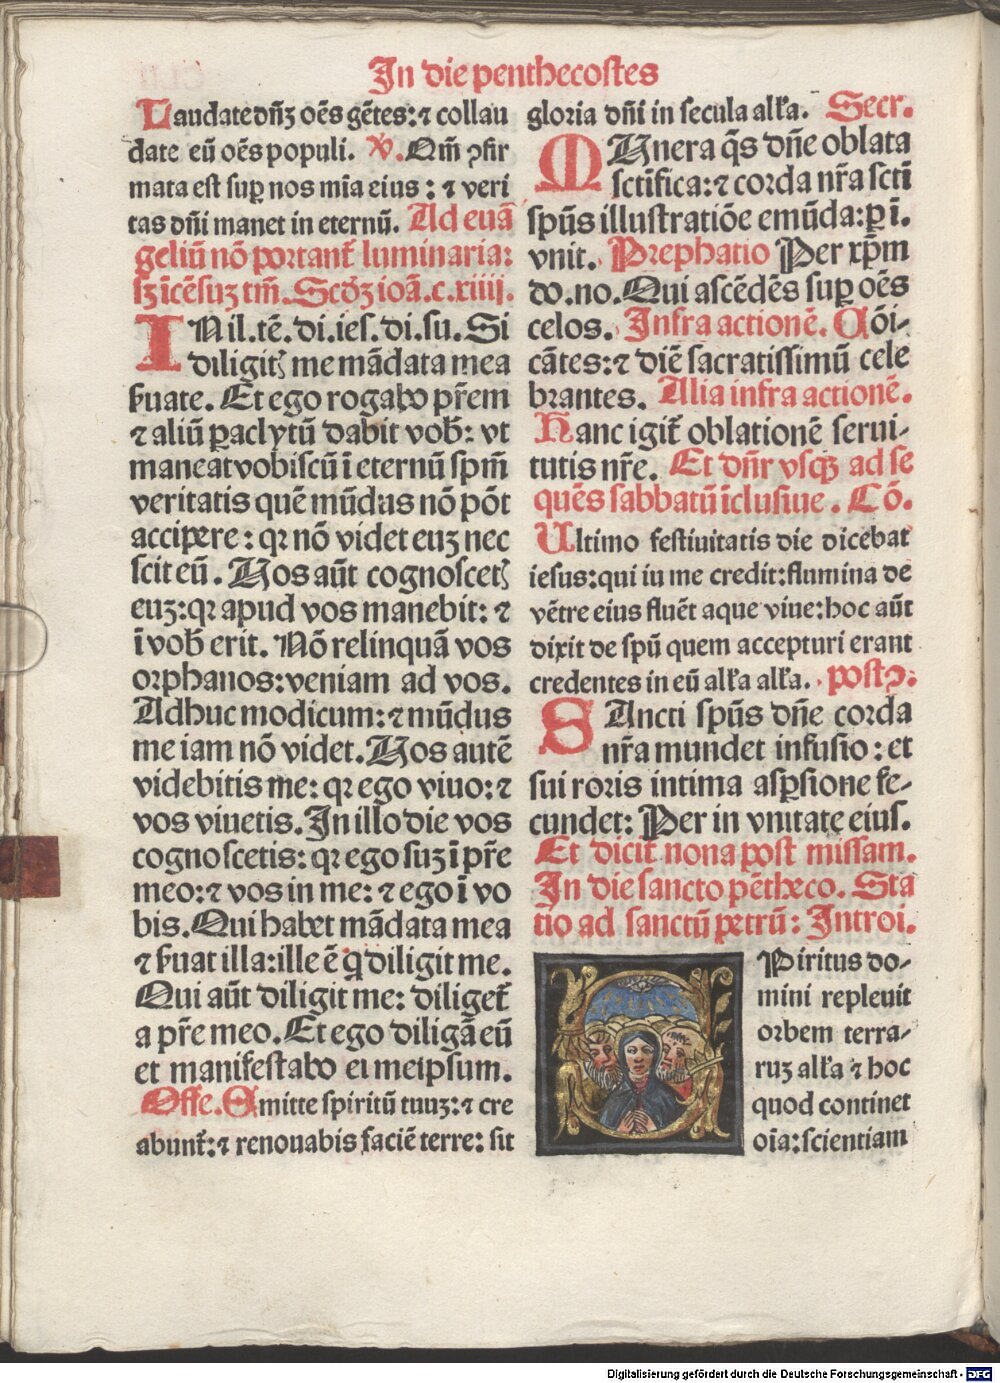 In die penthecostes
Laudate dn̄ꝫ oēs gētes: ⁊ collau
date eū oēs populi. ꝟ. Qm̄ ꝯfir
mata est suꝑ nos mīa eius : ⁊ veri
tas dn̄i manet in eternū. Ad euā
geliū nō portant᷑ luminaria:
sꝫ īcēsuꝫ tm̄. Scd̄ꝫ ioā. c. xiiij.
IN il. tē. di. ies. di. su. Si
diligitꝭ me mādata mea
ẜuate. Et ego rogabo pr̄em
⁊ aliū ꝑaclytū dabit vob̄: vt
maneat vobiscū ī eternū spm̄
veritatis quē mūdus nō pōt
accipere : qꝛ nō videt euꝫ nec
scit eū. Vos aūt cognoscetꝭ
euꝫ: qꝛ apud vos manebit: ⁊
ī vob̄ erit. Nō relinquā vos
orphanos: veniam ad vos.
Adhuc modicum: ⁊ mūdus
me iam nō videt. Vos autē
videbitis me: qꝛ ego viuo: ⁊
vos viuetis. In illo die vos
cognoscetis: qꝛ ego suꝫ ī pr̄e
meo: ⁊ vos in me: ⁊ ego ī vo
bis. Qui habet mādata mea
⁊ ẜuat illa: ille ē q̇ diligit me.
Qui aūt diligit me: diliget᷑
a pr̄e meo. Et ego diligā eū
et manifestabo ei meipsum.
Offe. Emitte spiritū tuuꝫ: ⁊ cre
abunt᷑: ⁊ renouabis faciē terre: sit
gloria dn̄i in secula alľa. Secr.
MUnera q̄s dn̄e oblata
sctīfica: ⁊ corda nr̄a scti
spūs illustratiōe emūda: ꝑ ī.
vnit. Prephatio Per xp̄m
do. no. Qui ascēdēs suꝑ oēs
celos. Infra actionē. Cōi-
cātes: ⁊ diē sacratissimū cele
brantes. Alia infra actionē.
Hanc igit᷑ oblationē serui-
tutis nr̄e. Et dn̄r vsqꝫ ad se
quēs sabbatū īclusiue. Cō.
Ultimo festiuitatis die dicebat
iesus: qui in me credit: flumina de
vētre eius fluēt aque viue: hoc aūt
dixit de spū quem accepturi erant
credentes in eū alľa alľa. postꝯ:
SAncti spūs dn̄e corda
nr̄a mundet infusio : et
sui roris intima asꝑsione fe-
cundet: Per in vnitate eius.
Et dicit᷑ nona post missam.
In die sancto pētheco. Sta
tio ad sanctū petrū : Introi.
SPiritus do-
mini repleuit
orbem terra-
ruꝫ alľa ⁊ hoc
quod continet
oīa: scientiam
Digitalisierung gefördert durch die Deutsche Forschungsgemeinschaft - DFG